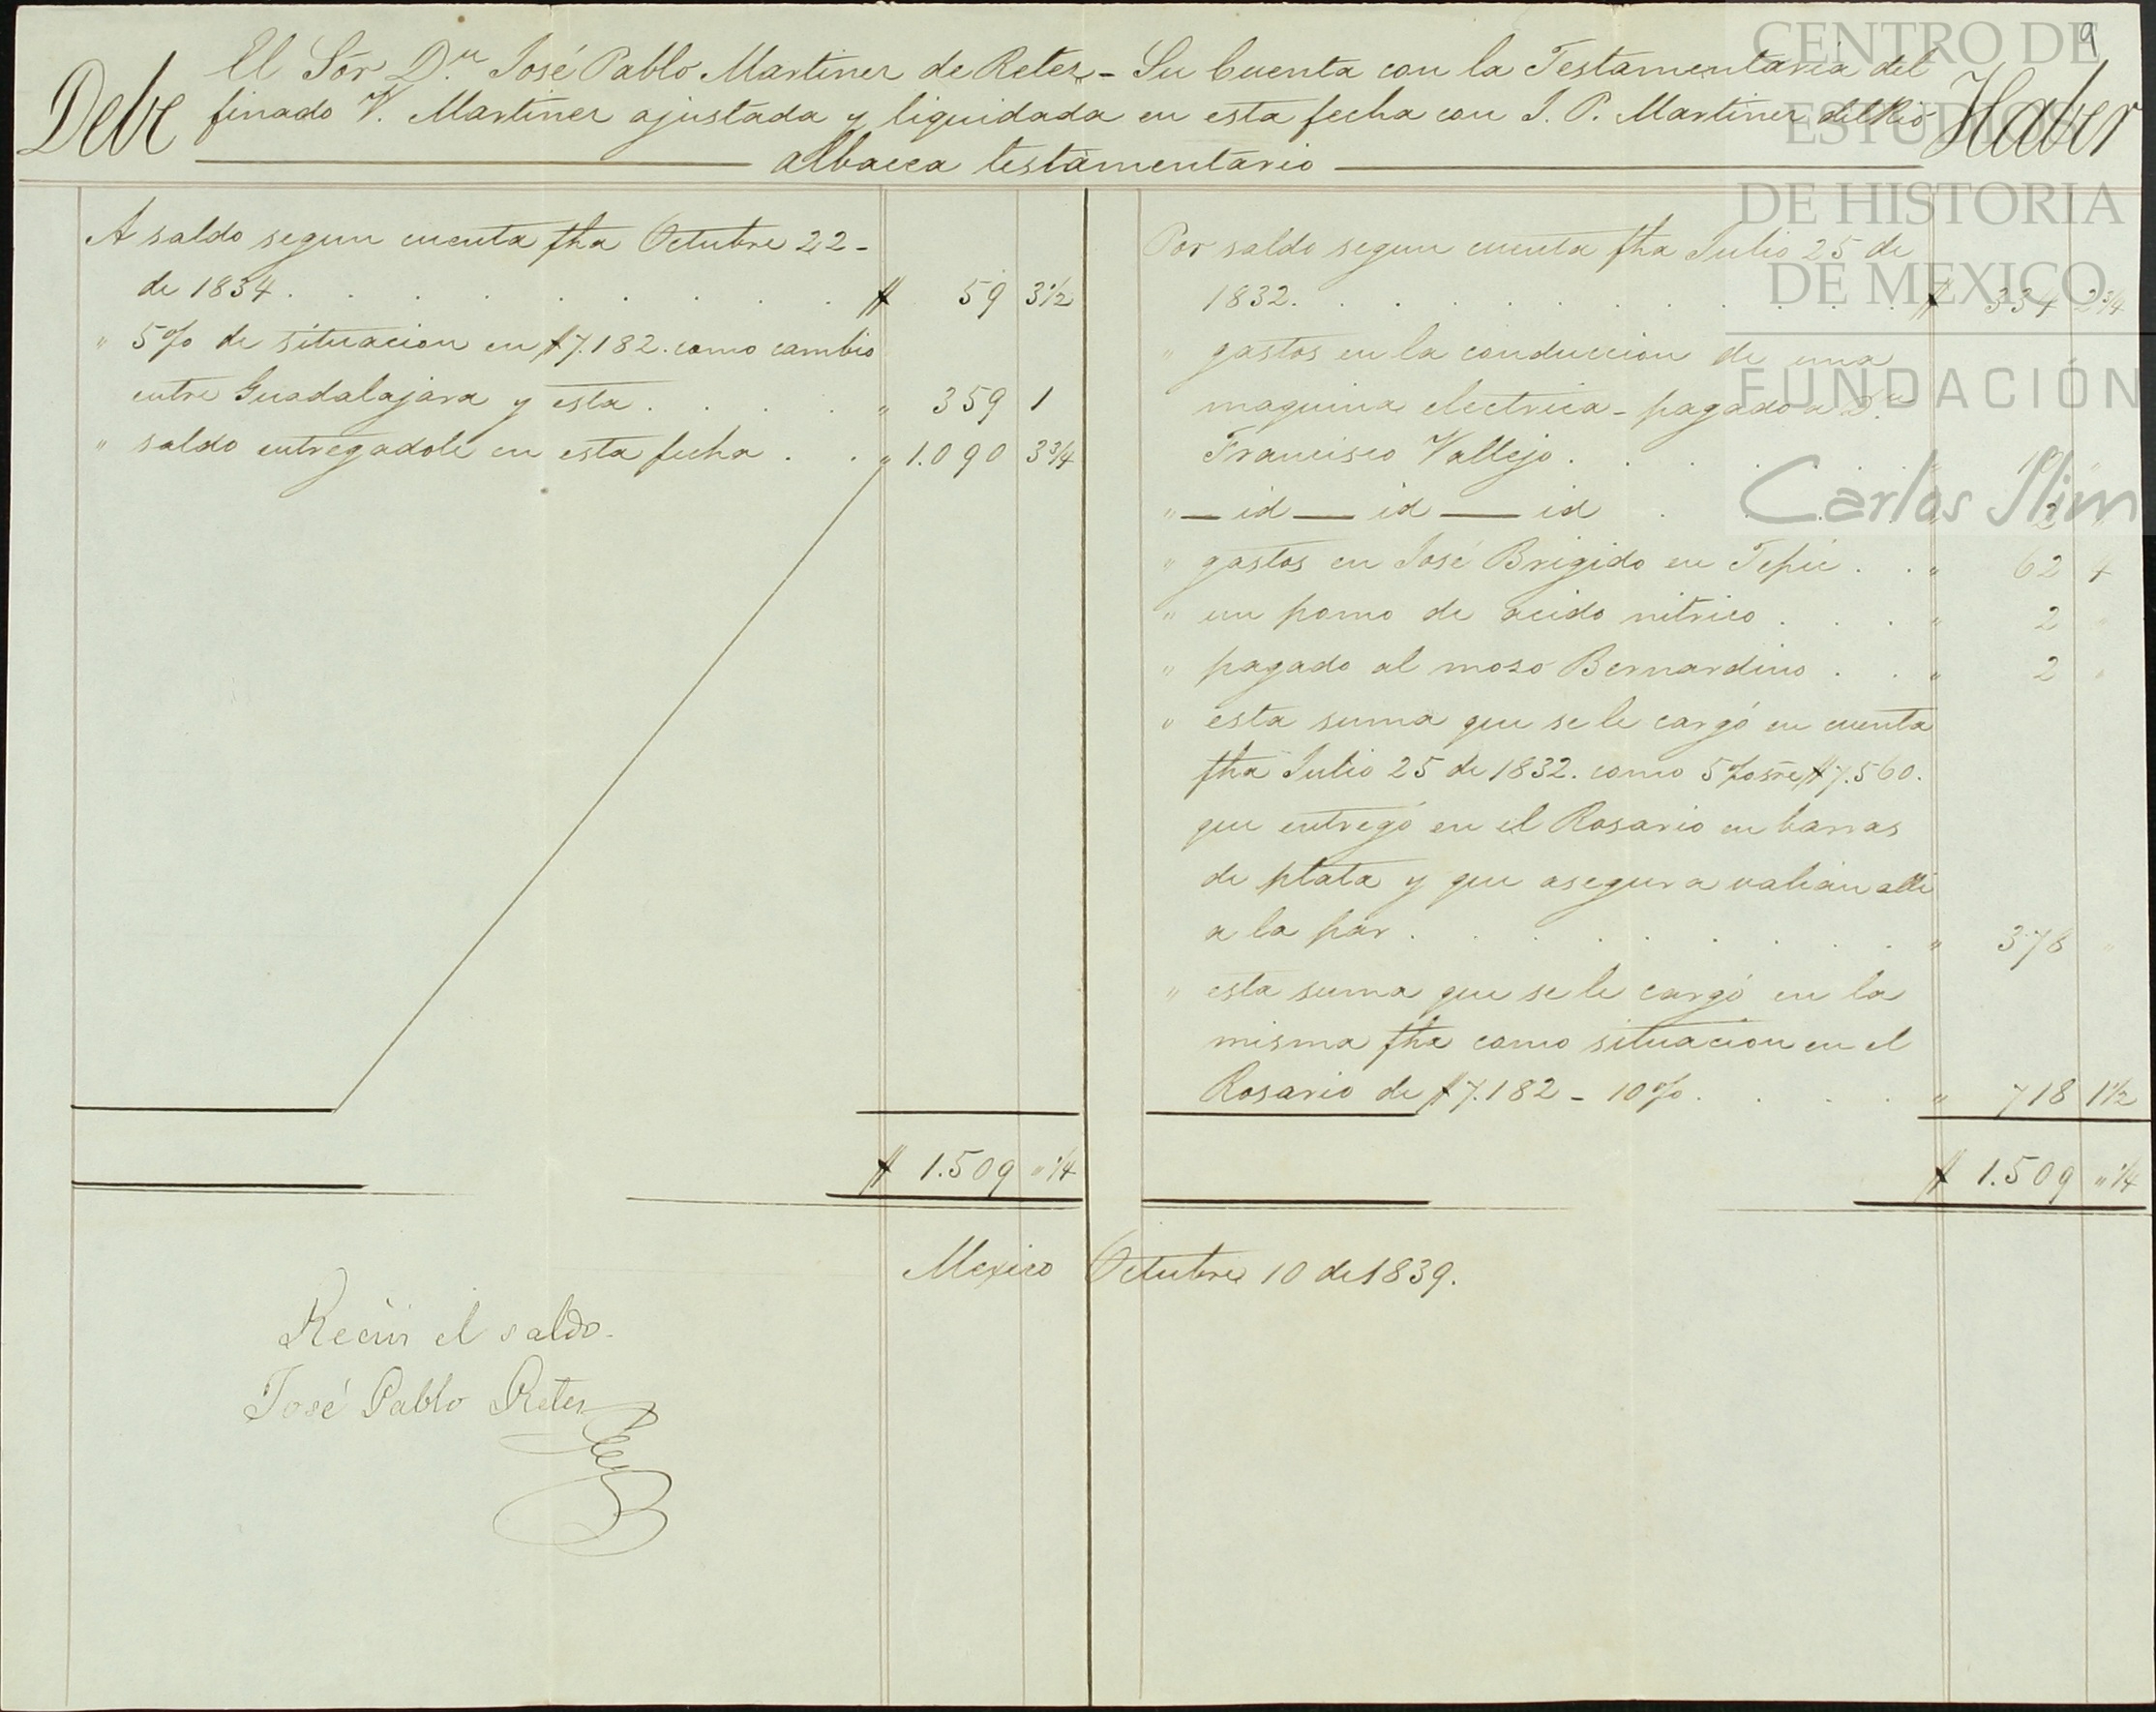 9
Debe
El Sór D.n José Pablo Martinez de Retes - Su Cuenta con la Testamentaria del
finado V. Martinez ajustada y liquidada en esta fecha con J. P. Martinez del Rio
albacea testamentario
Haber
A saldo segun cuenta fha Octubre 22 -
de 1834 . . . . . . . . . $ 59 3 1/2
" 5% de situacion en $7.182. como cambio
entre Guadalajara y esta . . . . " 359 1
" saldo entregadole en esta fecha . . " 1.090 3 3/4
$ 1.509 " 1/4
Por saldo segun cuenta fha Julio 25 de
1832. . . . . . . . . . $ 334 2 3/4
" gastos en la conduccion de una
maquina electrica - pagado a D.n
Francisco Vallejo . . . . " 10 "
" — id — id — id . . . . " 2 "
" gastos en José Brigido en Tepic . . " 62 4
" un pomo de acido nitrico . . . " 2 "
" pagado al moso Bernardino . . " 2 "
" esta suma que se le cargó en cuenta
fha Julio 25 de 1832. como 5% sre $7.560.
que entregó en el Rosario en barras
de plata y que asegura valian alli
a la par . . . . . . . . " 378 "
" esta suma que se le cargó en la
misma fha como situacion en el
Rosario de $7.182 - 10% . . . . " 718 1 1/2
$ 1.509 " 1/4
Mexico Octubre 10 de 1839.
Recivi el saldo.
José Pablo Retes
CENTRO DE
ESTUDIOS
DE HISTORIA
DE MEXICO
FUNDACIÓN
Carlos Slim